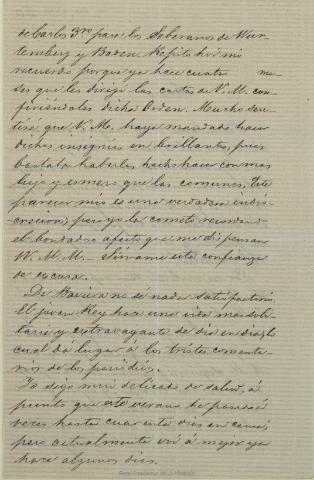 de Carlos 3ro para los Soberanos de Wur-
temberg y Baden. Repito hoi mi
recuerdo porque ya hace cuatro me-
ses que les dirigí las cartas de V. M. con-
firiéndoles dicha Orden. Mucho sen-
tiré que V. M. haya mandado hacer
dichas insignias en brillantes, pues
bastaba haberlas hecho hacer con mas
lujo y esmero que las comunes. Este
parecer mio es una verdadera indis-
crecion; pero yo la cometo recordando
el bondadoso afecto que me dispensan
VV. M.M. Sirvame esta confianza
de excusa.
De Baviera no sé nada satisfactorio.
El joven Rey hace una vida mas soli-
taria y extravagante de dia en dia, lo
cual dá lugar á los tristes comenta-
rios de los periódicos.
Yo sigo mui delicado de salud, á
punto que este verano he pasado á
veces hasta cuarenta dias en cama;
pero actualmente voi á mejor ya
hace algunos dias.
Real Academia de la Historia